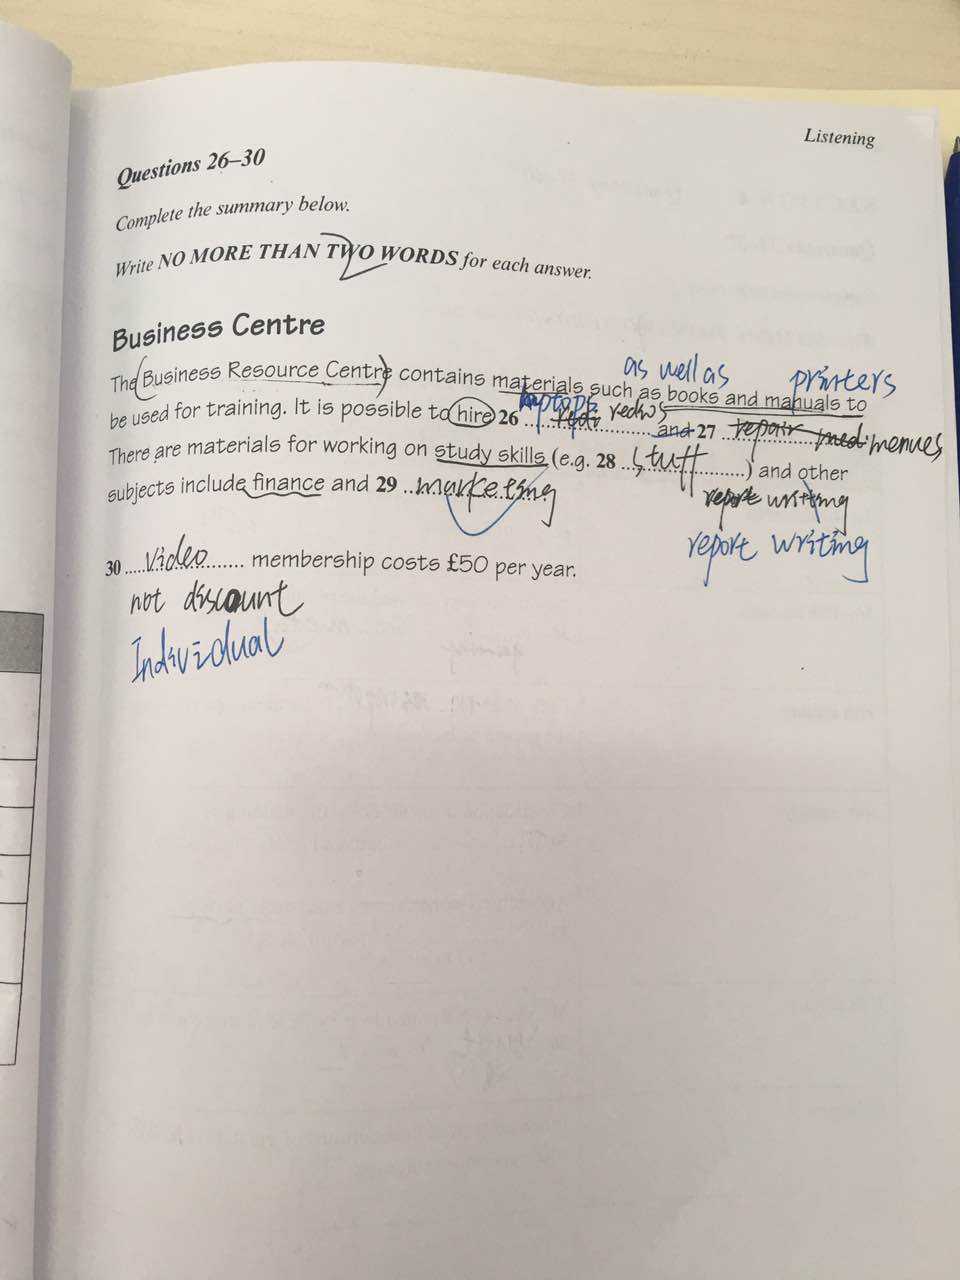 Listening
Questions 26–30
Complete the summary below.
Write NO MORE THAN TWO WORDS for each answer.
Business Centre
as well as printers
The Business Resource Centre contains materials such as books and manuals to
laptops
be used for training. It is possible to hire 26 ........ and 27 repair
There are materials for working on study skills (e.g. 28 ..stuff........) and other
subjects include finance and 29 ..marketing
report writing
report writing
30 ....video....... membership costs £50 per year.
not discount
Individual